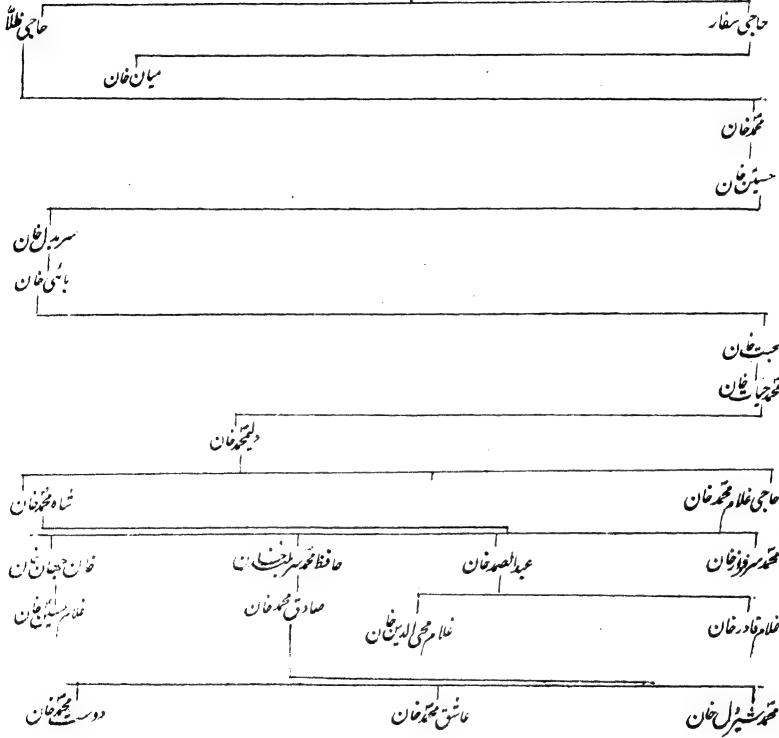 حاجی سفار حاجی ظلاّ
میان خان
محمّد خان
حسین خان
سربدل خان
بائی خان
محبت خان
محمّد حیات خان
دلیمحمّد خان
حاجی غلام محمّد خان شاہ محمّد خان
محمّد سرفراز خان عبدالصمد خان حافظ محمّد سربلند خان خان جہان خان
غلام قادر خان غلام محی الدین خان صادق محمد خان غلام حسین خان
محمّد شیر دل خان عاشق محمّد خان دوست محمّد خان